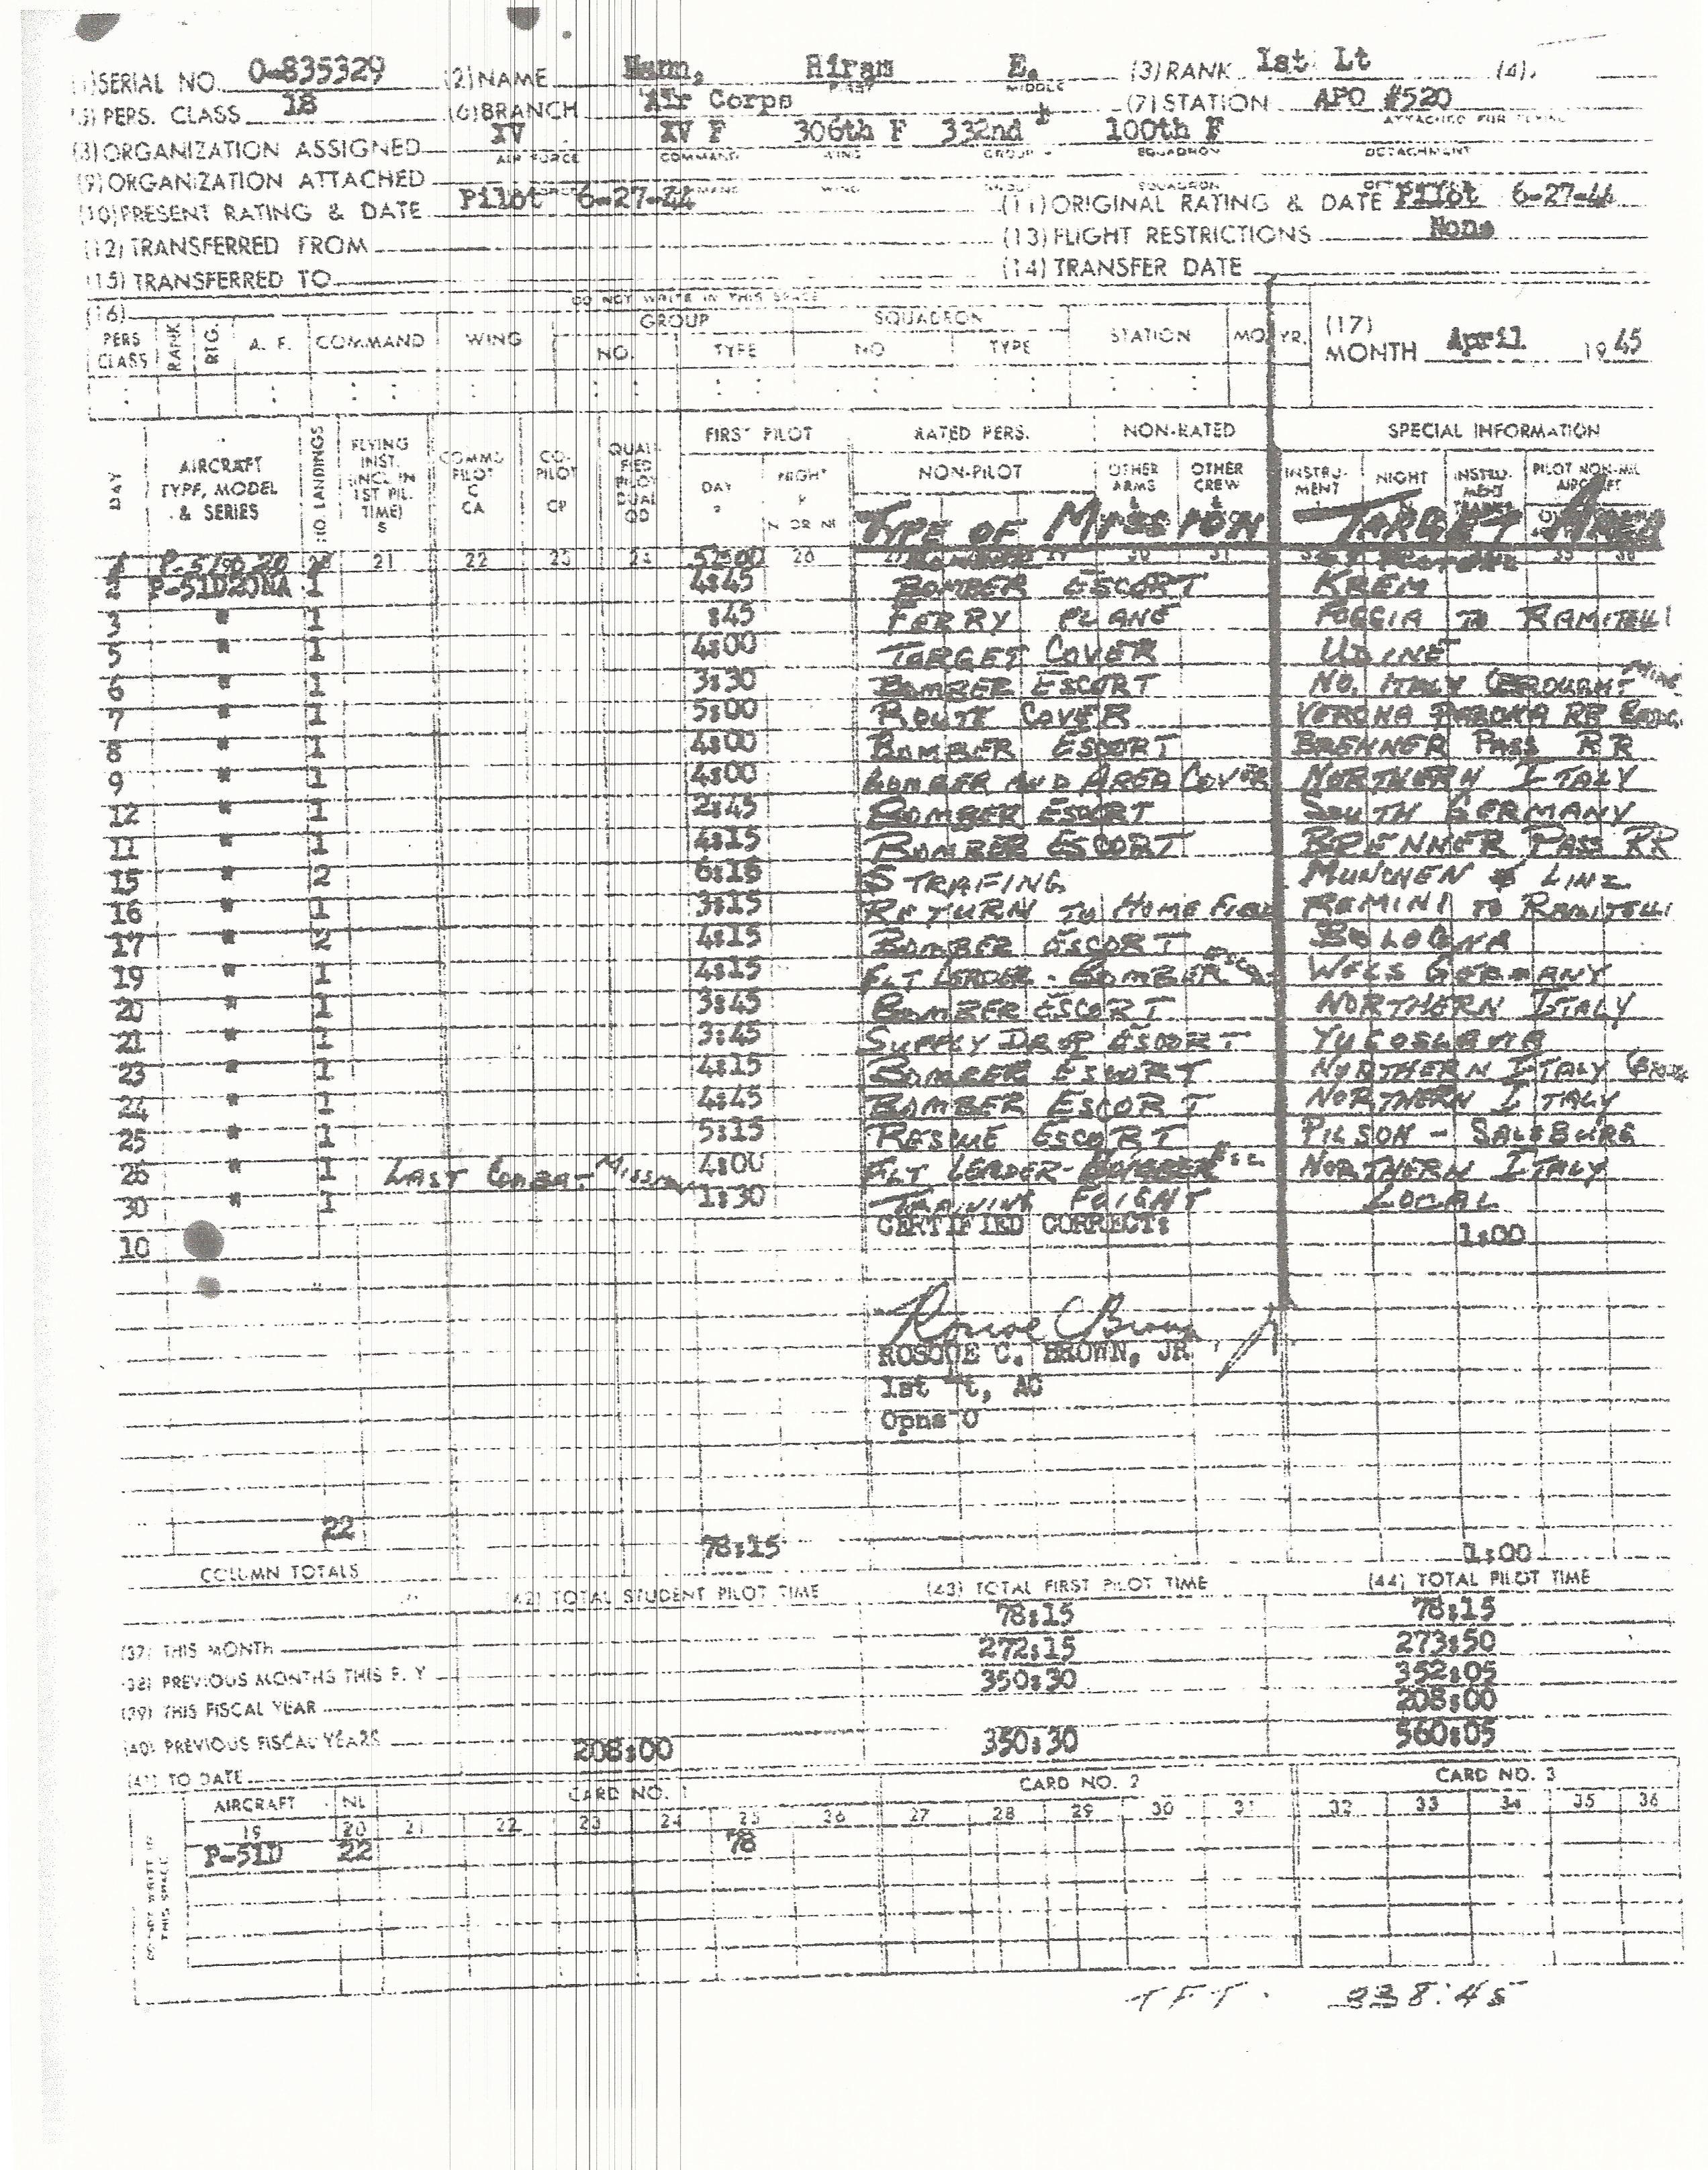 (1) SERIAL NO. O-835329 (2) NAME Mann, Hiram E. (3) RANK 1st Lt (4)
FIRST MIDDLE
(5) PERS. CLASS 18 (6) BRANCH Air Corps (7) STATION APO #520
(8) ORGANIZATION ASSIGNED XV XV F 306th F 332nd F 100th F
AIR FORCE COMMAND WING GROUP SQUADRON DETACHMENT
ATTACHED FOR FLYING
(9) ORGANIZATION ATTACHED
(10) PRESENT RATING & DATE Pilot 6-27-44 (11) ORIGINAL RATING & DATE Pilot 6-27-44
(12) TRANSFERRED FROM (13) FLIGHT RESTRICTIONS None
(15) TRANSFERRED TO (14) TRANSFER DATE
DO NOT WRITE IN THIS SPACE
(16) PERS CLASS RANK RTG. A. F. COMMAND WING GROUP NO. TYPE SQUADRON NO TYPE STATION MO. YR. (17) MONTH April 1945
DAY AIRCRAFT TYPE, MODEL & SERIES NO LANDINGS FLYING INST. (INCL IN 1ST PIL. TIME) S COMMD PILOT C CA CO-PILOT CP QUALIFIED PILOT DUAL QD FIRST PILOT DAY P NIGHT P N OR NI RATED PERS. NON-PILOT NON-RATED OTHER ARMS & OTHER CREW & SPECIAL INFORMATION INSTRUMENT NIGHT INSTRUMENT PILOT NON-MIL AIRCRAFT
TYPE OF MISSION TARGET AREA
21 22 23 24 26 30 31
2 P-51D20NA 1 4:45 BOMBER ESCORT KREM
3 " 1 :45 FERRY PLANE FOGGIA TO RAMITELLI
5 " 1 4:00 TARGET COVER UDINE
6 " 1 3:30 BOMBER ESCORT NO. ITALY
7 " 1 5:00 ROUTE COVER VERONA RR
8 " 1 4:00 BOMBER ESCORT BRENNER PASS RR
9 " 1 4:00 BOMBER AND AREA COVER NORTHERN ITALY
12 " 1 2:45 BOMBER ESCORT SOUTH GERMANY
11 " 1 4:15 BOMBER ESCORT BRENNER PASS RR
15 " 2 6:15 STRAFING MUNCHEN & LINZ
16 " 1 3:15 RETURN TO HOME FIELD REMINI TO RAMITELLI
17 " 2 4:15 BOMBER ESCORT BOLOGNA
19 " 1 4:15 FLT LEADER - BOMBER ESC. WELS GERMANY
20 " 1 3:45 BOMBER ESCORT NORTHERN ITALY
21 " 1 3:45 SUPPLY DROP ESCORT YUGOSLAVIA
23 " 1 4:15 BOMBER ESCORT NORTHERN ITALY
24 " 1 4:45 BOMBER ESCORT NORTHERN ITALY
25 " 1 5:15 RESCUE ESCORT PILSON - SALSBURG
26 " 1 LAST COMBAT MISSION 4:00 FLT LEADER - BOMBER ESC. NORTHERN ITALY
30 " 1 1:30 TRAINING FLIGHT LOCAL
CERTIFIED CORRECT:
10 1:00
Roscoe C Brown
ROSCOE C. BROWN, JR
1st Lt, AC
Opns O
22 78:15 1:00
COLUMN TOTALS
(42) TOTAL STUDENT PILOT TIME (43) TOTAL FIRST PILOT TIME (44) TOTAL PILOT TIME
(37) THIS MONTH 78:15 78:15
(38) PREVIOUS MONTHS THIS F. Y 272:15 273:50
(39) THIS FISCAL YEAR 350:30 352:05
(40) PREVIOUS FISCAL YEARS 208:00
(41) TO DATE 208:00 350:30 560:05
AIRCRAFT NL CARD NO. 1 CARD NO. 2 CARD NO. 3
19 20 21 22 23 24 25 26 27 28 29 30 31 32 33 34 35 36
P-51D 22 78
DO NOT WRITE IN THIS SPACE
TFT. 338:45